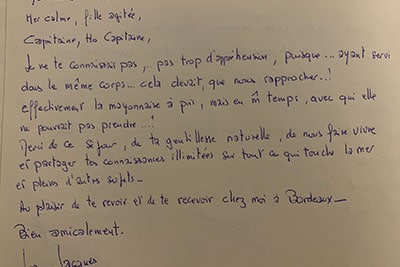 Mer calme, fille agitée,
Capitaine, Ho Capitaine,
Je ne te connaissais pas, pas trop d'appréhension, puisque... ayant servi
dans le même corps... cela devait, que nous rapprocher...!
effectivement la mayonnaise à pris, mais en m̂ temps, avec qui elle
ne pourrait pas prendre...!
Merci de ce séjour, de ta gentillesse naturelle, de nous faire vivre
et partager tes connaissances illimitées sur tout ce qui touche la mer
et pleins d'autres sujets_
Au plaisir de te revoir et de te recevoir chez moi à Bordeaux_
Bien amicalement.
Jacques